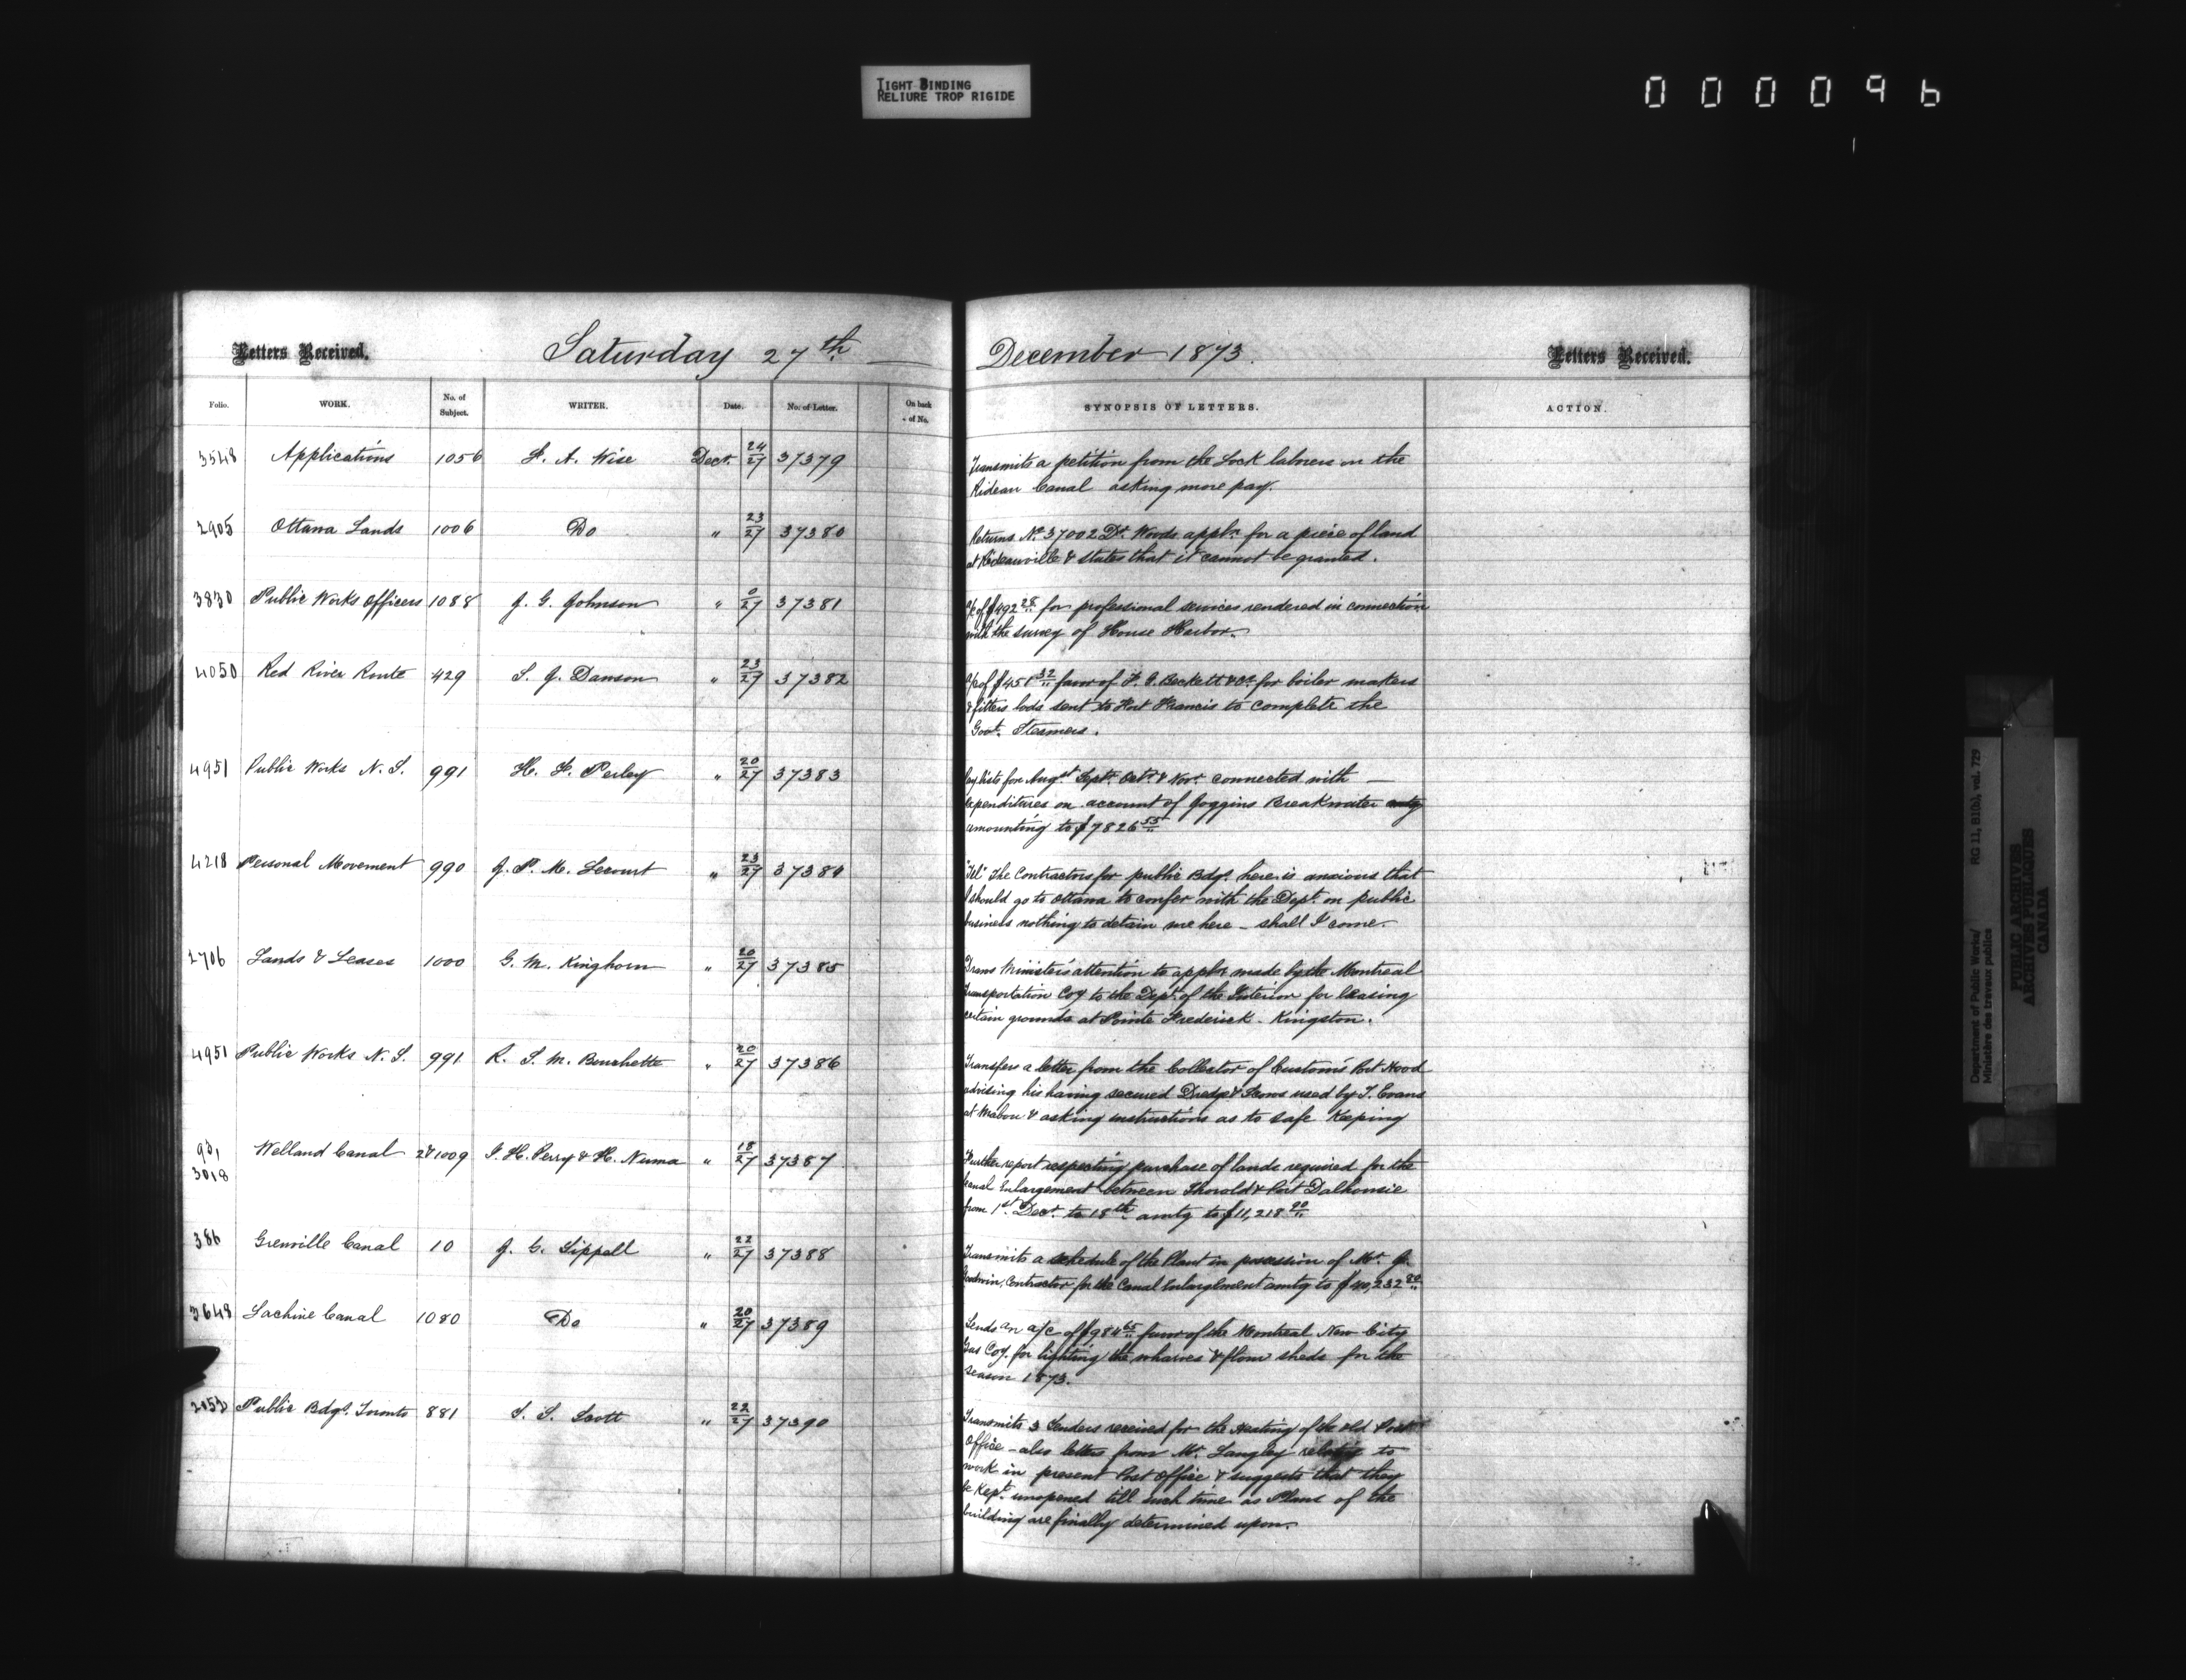 TIGHT BINDING
RELIURE TROP RIGIDE
000096
Letters Received.
Saturday 27th
December 1873.
Letters Received.
Folio. WORK. No. of Subject. WRITER. Date. No. of Letter. On back of No. SYNOPSIS OF LETTERS. ACTION.
3548 Applications 1056 F. A. Wise Decr. 24/27 37379
Transmits a petition from the Lock labrers on the
Rideau Canal asking more pay.
2905 Ottawa Lands 1006 Do " 23/27 37380
Returns No 37002 Dr. Woods appln. for a piece of land
at Rideauville & states that it cannot be granted.
3830 Public Works Officers 1088 J. G. Johnson " 0/27 37381
a/c of $492 28 for professional services rendered in connection
with the survey of House Harbor.
4050 Red River Route 429 S. J. Dawson " 23/27 37382
a/c of $451 32 favor of F. G. Beckett & Co. for boiler makers
& fitters bods sent to Fort Francis to complete the
Govt. Steamers.
4951 Public Works N. S. 991 H. F. Perley " 20/27 37383
Pay lists for Augst. Septr. Octr. & Novr. connected with
expenditures on account of Joggins Breakwater amtg
amounting to $7826 55
4218 Personal Movement 990 J. P. M. Lecourt " 23/27 37384
"Tel" The Contractors for public Bdgs. here is anxious that
I should go to Ottawa to confer with the Dept. on public
business nothing to detain me here - shall I come.
2706 Lands & Leases 1000 G. M. Kinghorn " 20/27 37385
Trans Minister's attention to appln made by the Montreal
Transportation Coy to the Dept. of the Interior for leasing
certain grounds at Pointe Frederick. Kingston.
4951 Public Works N. S. 991 R. S. M. Bouchette " 20/27 37386
Transfers a letter from the Collector of Customs Port Hood
advising his having secured Dredge & Scows used by T. Evans
at Mabou & asking instructions as to safe Keeping
93, 3018 Welland Canal 2 & 1009 I. H. Perry & H. Numa " 18/27 37387
Further report respecting purchase of lands required for the
Canal Enlargement between Thorold & Port Dalhousie
from 1st. Decr. to 18th amtg to $11,218 90
386 Grenville Canal 10 J. G. Sippell " 22/27 37388
Transmits a schedule of the Plant in possession of Mr. J.
Goodwin, Contractor for the Canal Enlarglment amtg to $40,232 80
3648 Lachine Canal 1080 Do " 20/27 37389
Sends an a/c of $984 65 favor of the Montreal New City
Gas Coy. for lighting the wharves & flour sheds for the
season 1873.
2053 Public Bdgs. Toronto 881 T. S. Scott " 22/27 37390
Transmits 3 Tenders received for the Heating of the old Post
Office - also letters from Mr. Langley relating to
work in present Post Office & suggests that they
be kept unopened till such time as Plans of the
building are finally determined upon.
Department of Public Works/ RG 11, B1(b), vol. 729
Ministère des travaux publics
PUBLIC ARCHIVES
ARCHIVES PUBLIQUES
CANADA